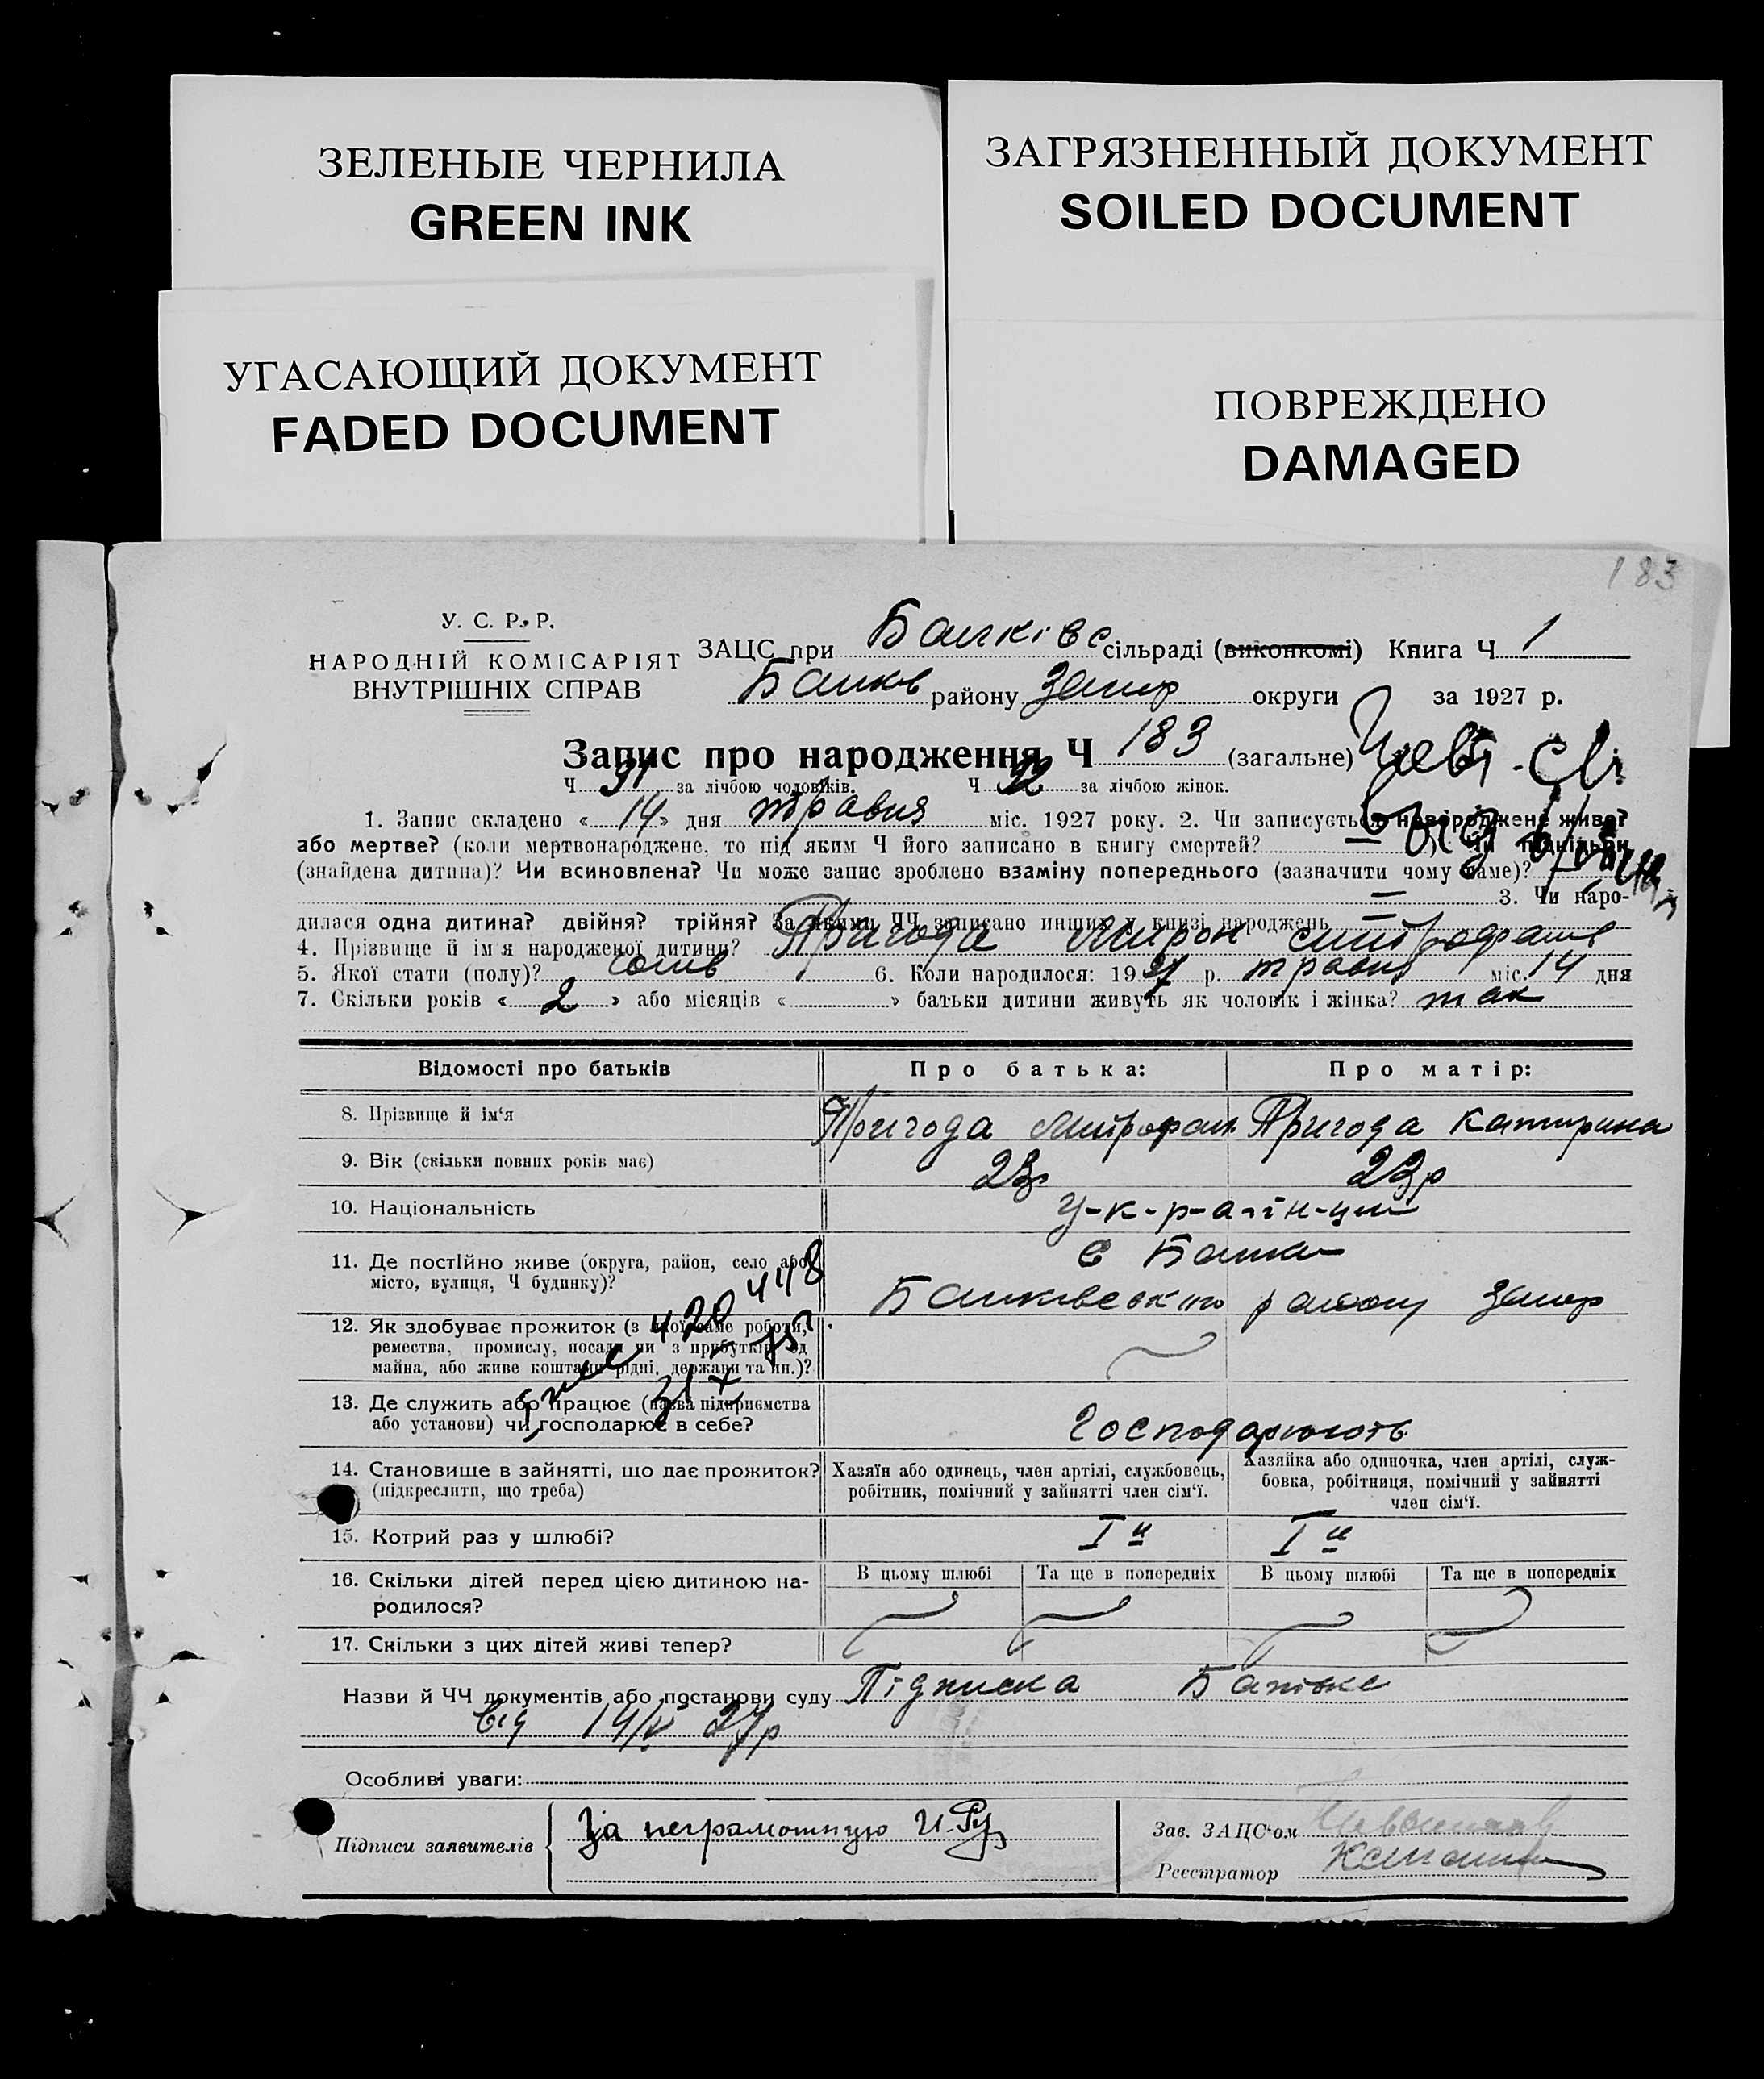 ЗЕЛЕНЫЕ ЧЕРНИЛА
GREEN INK
ЗАГРЯЗНЕННЫЙ ДОКУМЕНТ
SOILED DOCUMENT
УГАСАЮЩИЙ ДОКУМЕНТ
FADED DOCUMENT
ПОВРЕЖДЕНО
DAMAGED
183
У. С. Р. Р.
НАРОДНІЙ КОМІСАРІЯТ
ВНУТРІШНІХ СПРАВ
ЗАЦС при сільраді (виконкомі) Книга Ч 1
району округи за 1927 р.
Запис про народження Ч 183 (загальне)
Ч 91 за лічбою чоловіків. Ч 92 за лічбою жінок.
1. Запис складено « 14 » дня травня міс. 1927 року. 2. Чи записується новороджене живе?
або мертве? (коли мертвонароджене, то під яким Ч його записано в книгу смертей? ) чи підкидьок
(знайдена дитина)? Чи всиновлена? Чи може запис зроблено взаміну попереднього (зазначити чому саме)?
3. Чи наро-
дилася одна дитина? двійня? трійня? За якими ЧЧ записано инших у книзі народжень
4. Прізвище й ім'я народженої дитини? Пригода Мирон
5. Якої стати (полу)? 6. Коли народилося: 1927 р. травня міс. 14 дня
7. Скільки років « 2 » або місяців « » батьки дитини живуть як чоловік і жінка? так
Відомості про батьків Про батька: Про матір:
8. Прізвище й ім'я Пригода Митрофан Пригода Катирина
9. Вік (скільки повних років має) 23р 23р
10. Національність у-к-р-а-ін-ци
11. Де постійно живе (округа, район, село або
місто, вулиця, Ч будинку)?
району
12. Як здобуває прожиток (з якої саме роботи,
ремества, промислу, посади чи з прибутків од
майна, або живе коштами рідні, держави та ин.)?
13. Де служить або працює (назва підприємства
або установи) чи господарює в себе? господарюють
14. Становище в зайнятті, що дає прожиток?
(підкреслити, що треба)
Хазяїн або одинець, член артілі, службовець,
робітник, помічний у зайнятті член сім'ї.
Хазяйка або одиночка, член артілі, служ-
бовка, робітниця, помічний у зайнятті
член сім'ї.
15. Котрий раз у шлюбі? І й І й
16. Скільки дітей перед цією дитиною на-
родилося?
В цьому шлюбі Та ще в попередніх В цьому шлюбі Та ще в попередніх
17. Скільки з цих дітей живі тепер?
Назви й ЧЧ документів або постанови суду Підписка
Від 14/V 27р
Особливі уваги:
Підписи заявителів За неграмотную
Зав. ЗАЦС'ом
Реєстратор